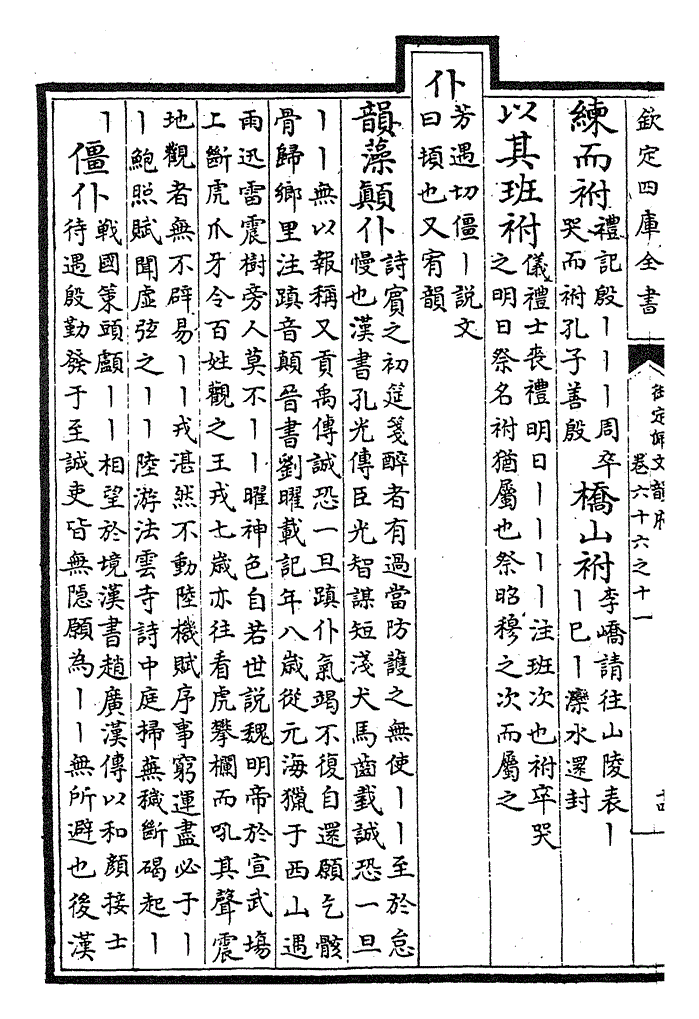 欽定四庫全書
御定佩文韻府
卷六十六之十一
十四
練而祔
禮記殷丨丨丨周卒
哭而祔孔子善殷
橋山祔
李嶠請往山陵表丨
丨巳丨灤水還封
以其班祔
儀禮士喪禮明日丨丨丨丨注班次也祔卒哭
之明日祭名祔猶屬也祭昭穆之次而屬之
仆
芳遇切僵丨說文
曰頃也又宥韻
韻藻顛仆
詩賓之初筵箋醉者有過當防護之無使丨丨至於怠
慢也漢書孔光傳臣光智謀短淺犬馬齒臷誠恐一旦
丨丨無以報稱又貢禹傳誠恐一旦蹎仆氣竭不復自還願乞骸
骨歸鄉里注蹎音顛晉書劉曜載記年八歲從元海獵于西山遇
雨迅雷震樹旁人莫不丨丨曜神色自若世說魏明帝於宣武塲
上斷虎爪牙令百姓觀之王戎七歲亦往看虎攀欄而吼其聲震
地觀者無不辟易丨丨戎湛然不動陸機賦序事窮運盡必于丨
丨鮑照賦聞虛弦之丨丨陸游法雲寺詩中庭掃蕪穢斷碣起丨
丨
僵仆
戰國策頭顱丨丨相望於境漢書趙廣漢傳以和顏接士
待遇殷勤發于至誠吏皆無隱願為丨丨無所避也後漢